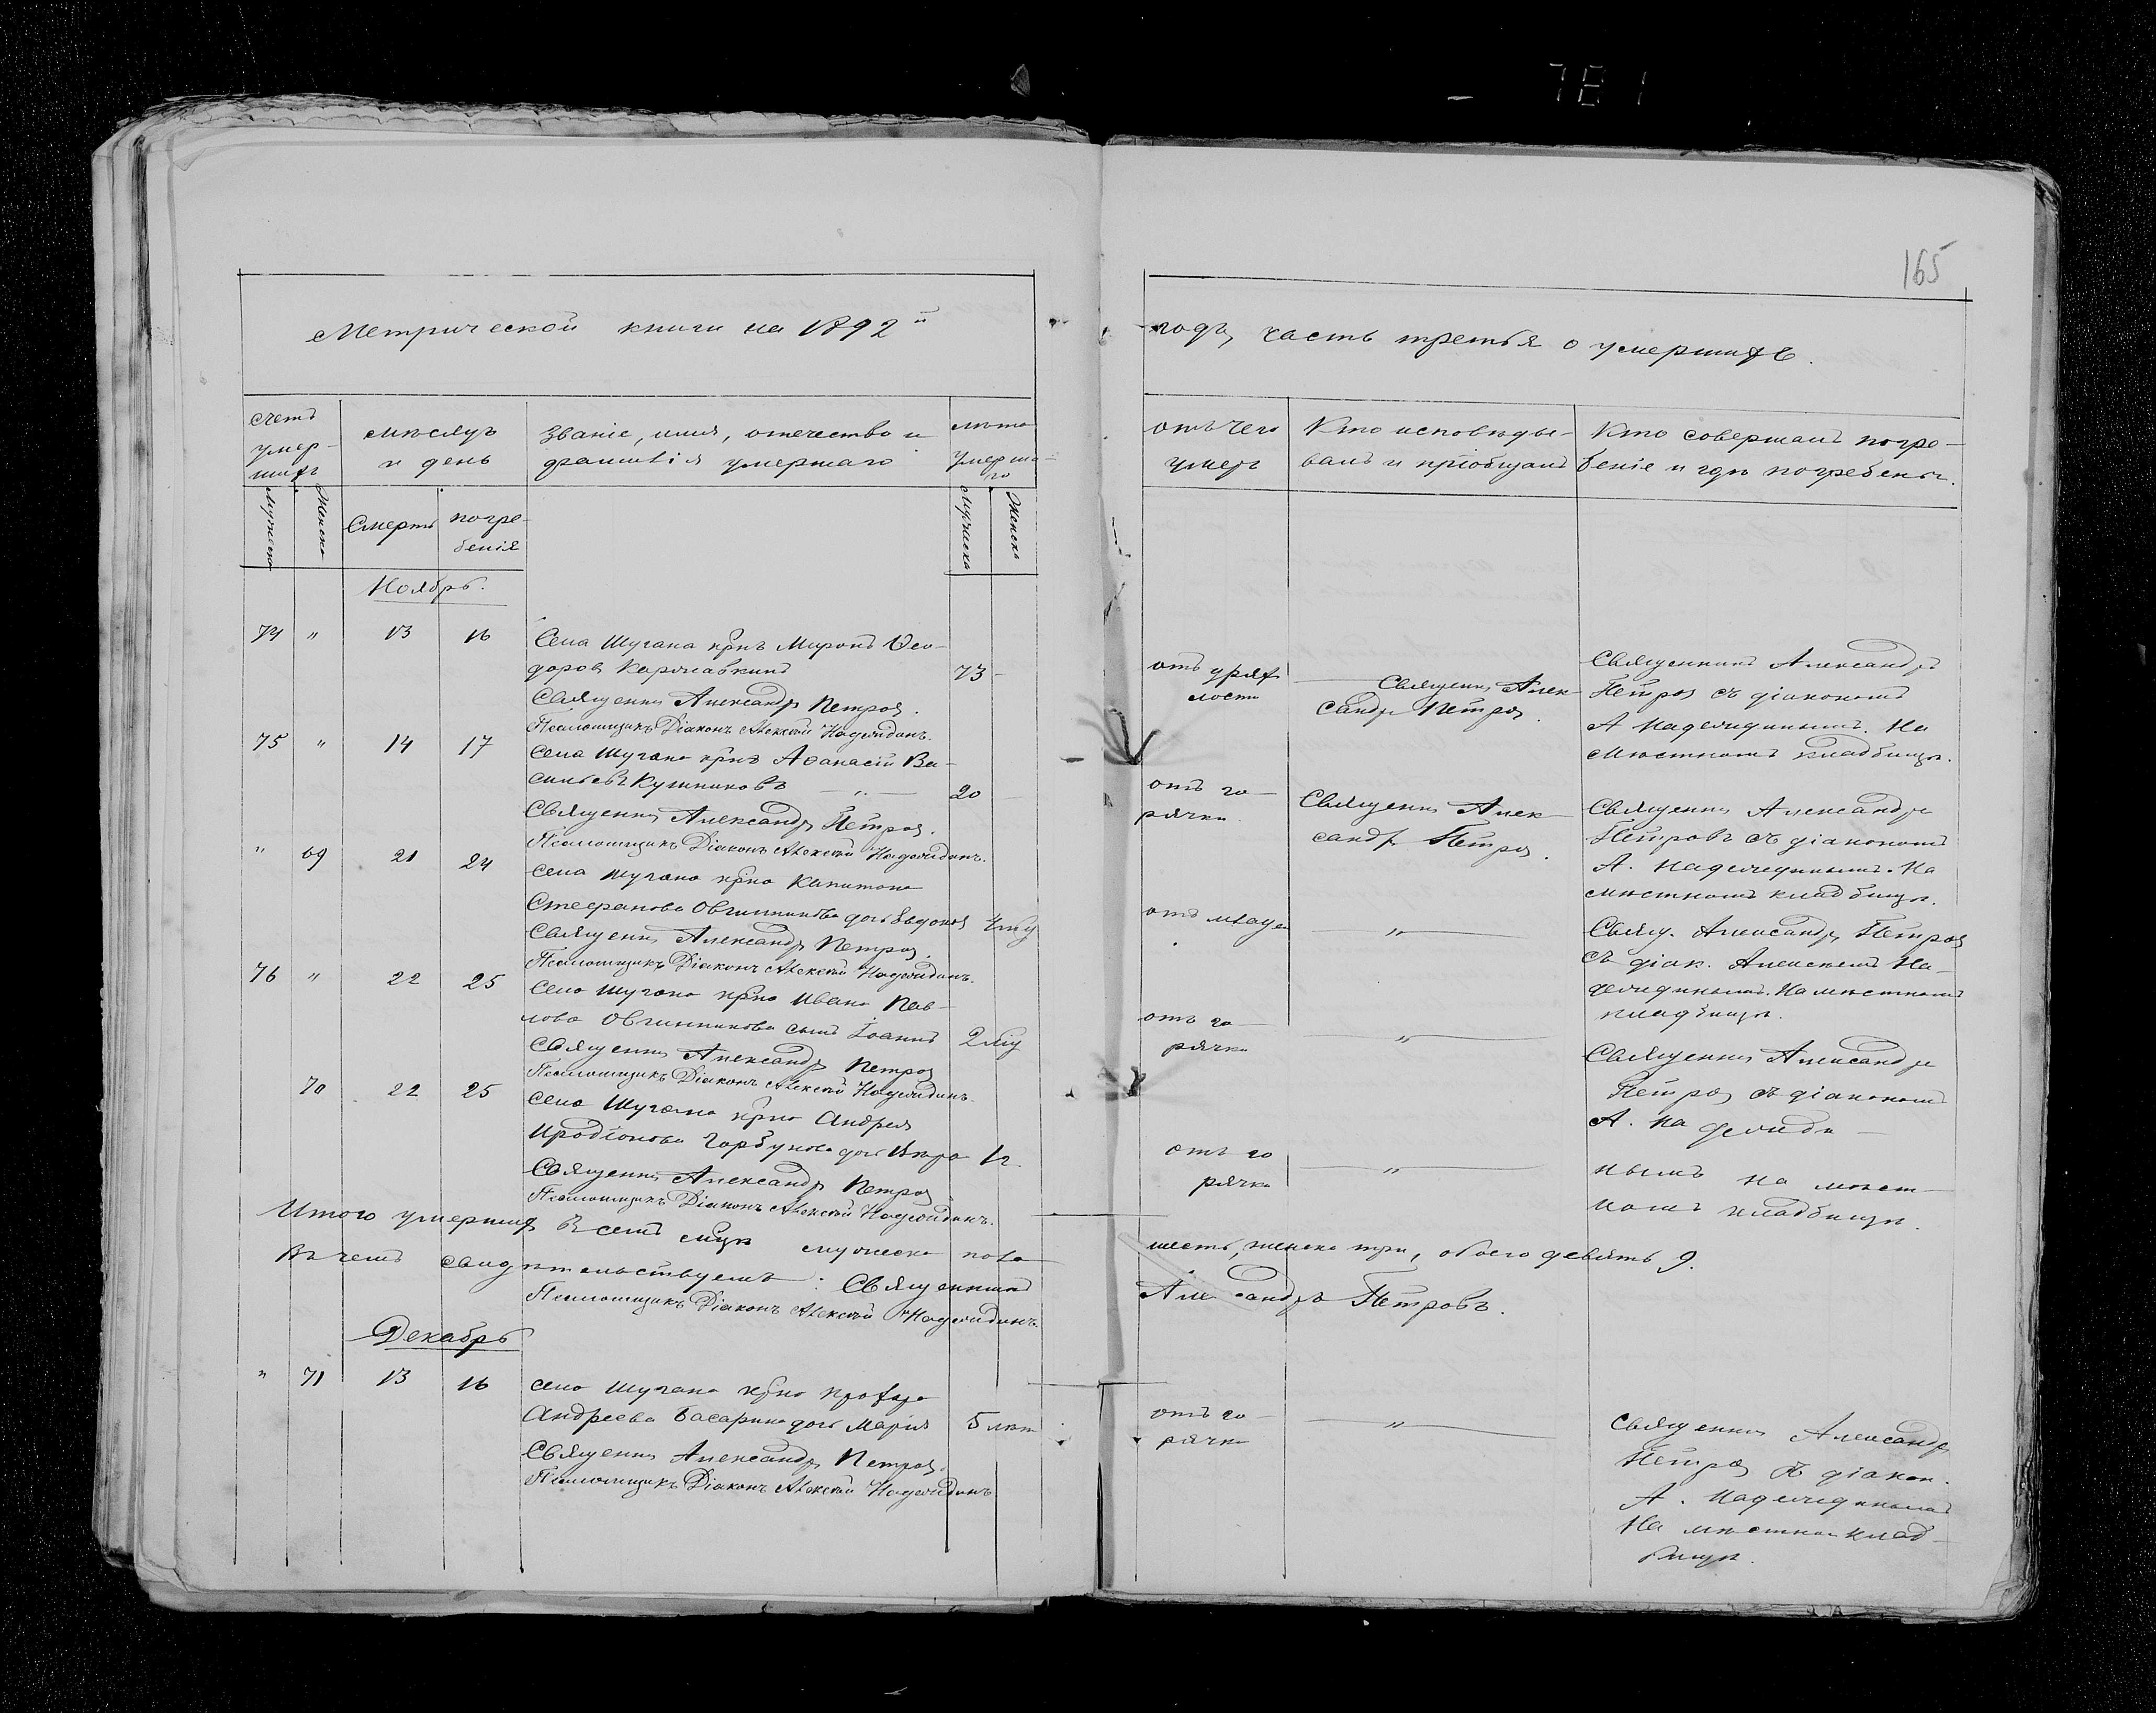 781
165
Метрической книги на 1892й
годъ, часть третья о умершихъ.
счетъ умер-
шихъ
мѣсяцъ
и день
Званіе, имя, отечество и
фамилія умершаго
лѣта
умерша-
го
отъ чего
умеръ
Кто исповѣды-
валъ и пріобщалъ
Кто совершалъ погре-
беніе и гдѣ погребены.
Мужеска
Женска
Смерти
погре-
бенія
Мужеска
Женска
Ноябрь.
74 " 13 16
Села Шугана крнъ Миронъ Ѳео-
доровъ 73
Священникъ Александръ Петровъ.
Псаломщикъ Діаконъ Алексѣй Надеждинъ.
отъ дрях
лости
Священ. Алек-
сандръ Петровъ.
Священникъ Александръ
Петровъ съ діакономъ
А Надеждинымъ. На
мѣстномъ кладбищѣ.
75 " 14 17
Села Шугана крнъ Аѳанасій Ва-
сильевъ Кушниковъ — " — 20
Священ. Александръ Петровъ.
Псаломщикъ Діаконъ Алексѣй Надеждинъ.
отъ го-
рячки
Священ. Алек-
сандръ Петровъ.
Священ. Александръ
Петровъ съ діакономъ
А. Надеждинымъ. На
мѣстномъ кладбищѣ.
" 69 21 24
Села Шугана крна Капитона
Стефанова Овчинникова дочь Евдокія
Священ. Александръ Петровъ.
Псаломщикъ Діаконъ Алексѣй Надеждинъ.
отъ младен
"
Свящ. Александръ Петровъ
съ діак. Алексѣемъ На-
деждинымъ. На мѣстномъ
кладбищѣ.
76 " 22 25
Села Шугана крна Ивана Пав-
лова Овчинникова сынъ Іоаннъ 2 мѣц
Священ. Александръ Петровъ
Псаломщикъ Діаконъ Алексѣй Надеждинъ.
отъ го-
рячки
"
Священ. Александръ
Петровъ съ діакономъ
А. Надежди-
70 22 25
Села Шугана крна Андрея
Иродіонова Горбунова дочь Вѣра 12.
Священ. Александръ Петровъ
Псаломщикъ Діаконъ Алексѣй Надеждинъ.
отъ го
рячки
"
нымъ на мѣст-
номъ кладбищѣ.
Итого умершихъ въ семъ мцѣ мужеска пола
шесть, женска три, обоего девять 9.
Въ чемъ свидѣтельствуемъ: Священникъ
Александръ Петровъ.
Псаломщикъ Діаконъ Алексѣй Надеждинъ.
Декабрь
" 71 13 16
села Шугана крна Прохора
Андреева Басарина дочь Марія 5 лѣт
Священ. Александръ Петровъ.
Псаломщикъ Діаконъ Алексѣй Надеждинъ
отъ го-
рячки
"
Священ. Александръ
Петровъ съ діакон.
А. Надеждинымъ
На мѣстном клад-
бищѣ.